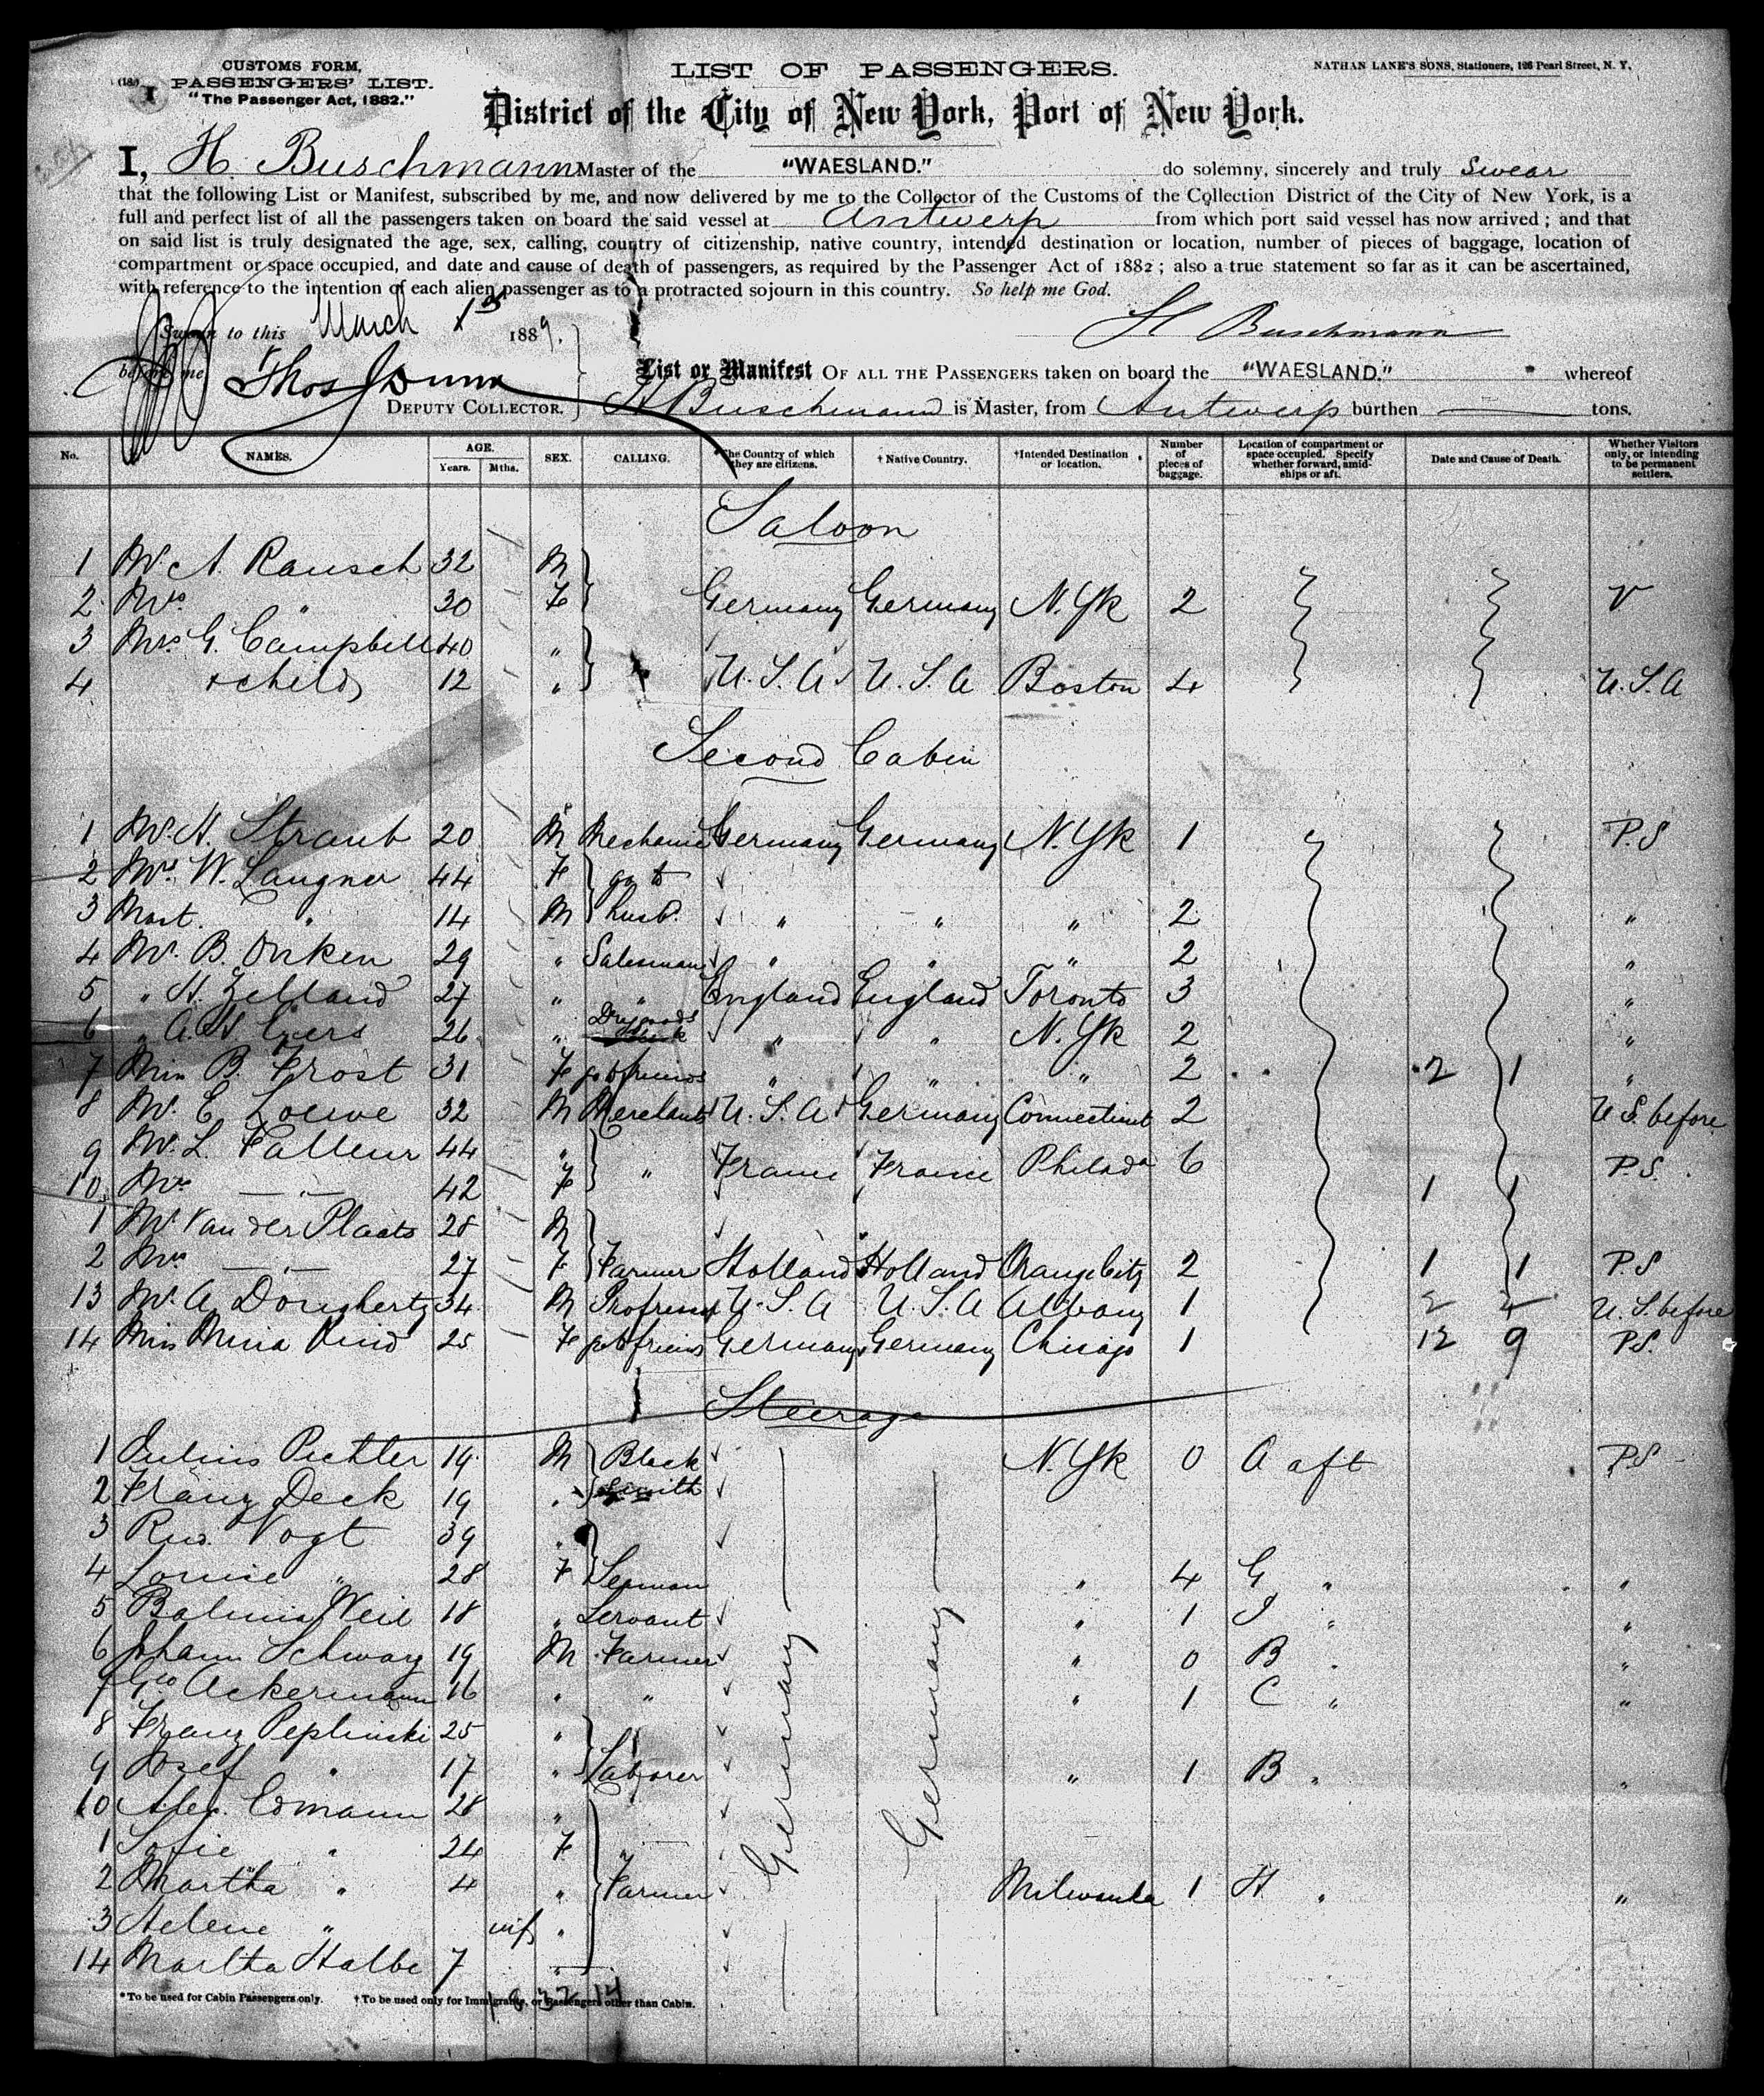 CUSTOMS FORM,
PASSENGERS' LIST.
"The Passenger Act, 1882."
LIST OF PASSENGERS.
NATHAN LANE'S SONS, Stationers, 126 Pearl Street, N. Y.
District of the City of New York, Port of New York.
I, H. Buschmann Master of the "WAESLAND." do solemny, sincerely and truly swear
that the following List or Manifest, subscribed by me, and now delivered by me to the Collector of the Customs of the Collection District of the City of New York, is a
full and perfect list of all the passengers taken on board the said vessel at Antwerp from which port said vessel has now arrived; and that
on said list is truly designated the age, sex, calling, country of citizenship, native country, intended destination or location, number of pieces of baggage, location of
compartment or space occupied, and date and cause of death of passengers, as required by the Passenger Act of 1882; also a true statement so far as it can be ascertained,
with reference to the intention of each alien passenger as to a protracted sojourn in this country. So help me God.
Sworn to this March 1st 1889.
H Buschmann
before me Thos J Dunn
DEPUTY COLLECTOR.
List or Manifest OF ALL THE PASSENGERS taken on board the "WAESLAND." whereof
H Buschmann is Master, from Antwerp burthen tons.
No. NAMES. AGE. Years. Mths. SEX. CALLING. *The Country of which they are citizens. † Native Country. †Intended Destination or location. Number of pieces of baggage. Location of compartment or space occupied. Specify whether forward, amidships or aft. Date and Cause of Death. Whether Visitors only, or intending to be permanent settlers.
Saloon
1 Mr. A. Rausch 32 M
2 Mrs. " 30 F Germany Germany N. Yk 2 V
3 Mrs. G. Campbell 40 "
4 + child 12 " U.S.A U.S.A Boston 4 U.S.A
Second Cabin
1 Mr. H. Straub 20 M Mechanic Germany Germany N. Yk 1 P.S
2 Mrs. W. Langner 44 F go to
3 Mast. " 14 M husb. " " " 2 "
4 Mr. B. Onken 29 " Salesman " " " 2 "
5 " H. Zelland 27 " " England England Toronto 3 "
6 " A. H. 26 " Drygoods " " N. Yk 2 "
7 Miss B. Frost 31 F go to friends " " " 2 2 1 "
8 Mr. E. Loewe 32 M Merchant U.S.A Germany Connecticut 2 U S. before
9 Mr. L. Falleur 44 " " France France Philada 6 P.S.
10 Mrs. " 42 F 1 1
1 Mr. Van der Plaats 28 M
2 Mrs " 27 F Farmer Holland Holland Orange City 2 1 1 P.S
13 Mr. A. Dougherty 34 M Professor U.S.A U.S.A Albany 1 2 4 U.S. before
14 Miss Mina Kind 25 F go to friends Germany Germany Chicago 1 12 9 P.S.
Steerage
1 Julius 19 M Black N. Yk 0 A aft P.S
2 Franz Deck 19 " smith
3 Rud. Vogt 39 "
4 Louise " 28 F " 4 G " "
5 Weil 18 " Servant " 1 " "
6 Johann Schwarz 19 M Farmer " 0 B " "
7 Geo Ackermann 16 " " " 1 C " "
8 Franz Peplinski 25 "
9 Josef " 17 " Laborer " 1 B " "
10 Alex. Edmann 28 "
1 Sofie " 24 F
2 Martha " 4 " Farmer Milwaukee 1 H " "
3 Helene " inf "
14 Martha Halbe 7 "
Germany
Germany
*To be used for Cabin Passengers only. †To be used only for Immigrants, or Passengers other than Cabin.